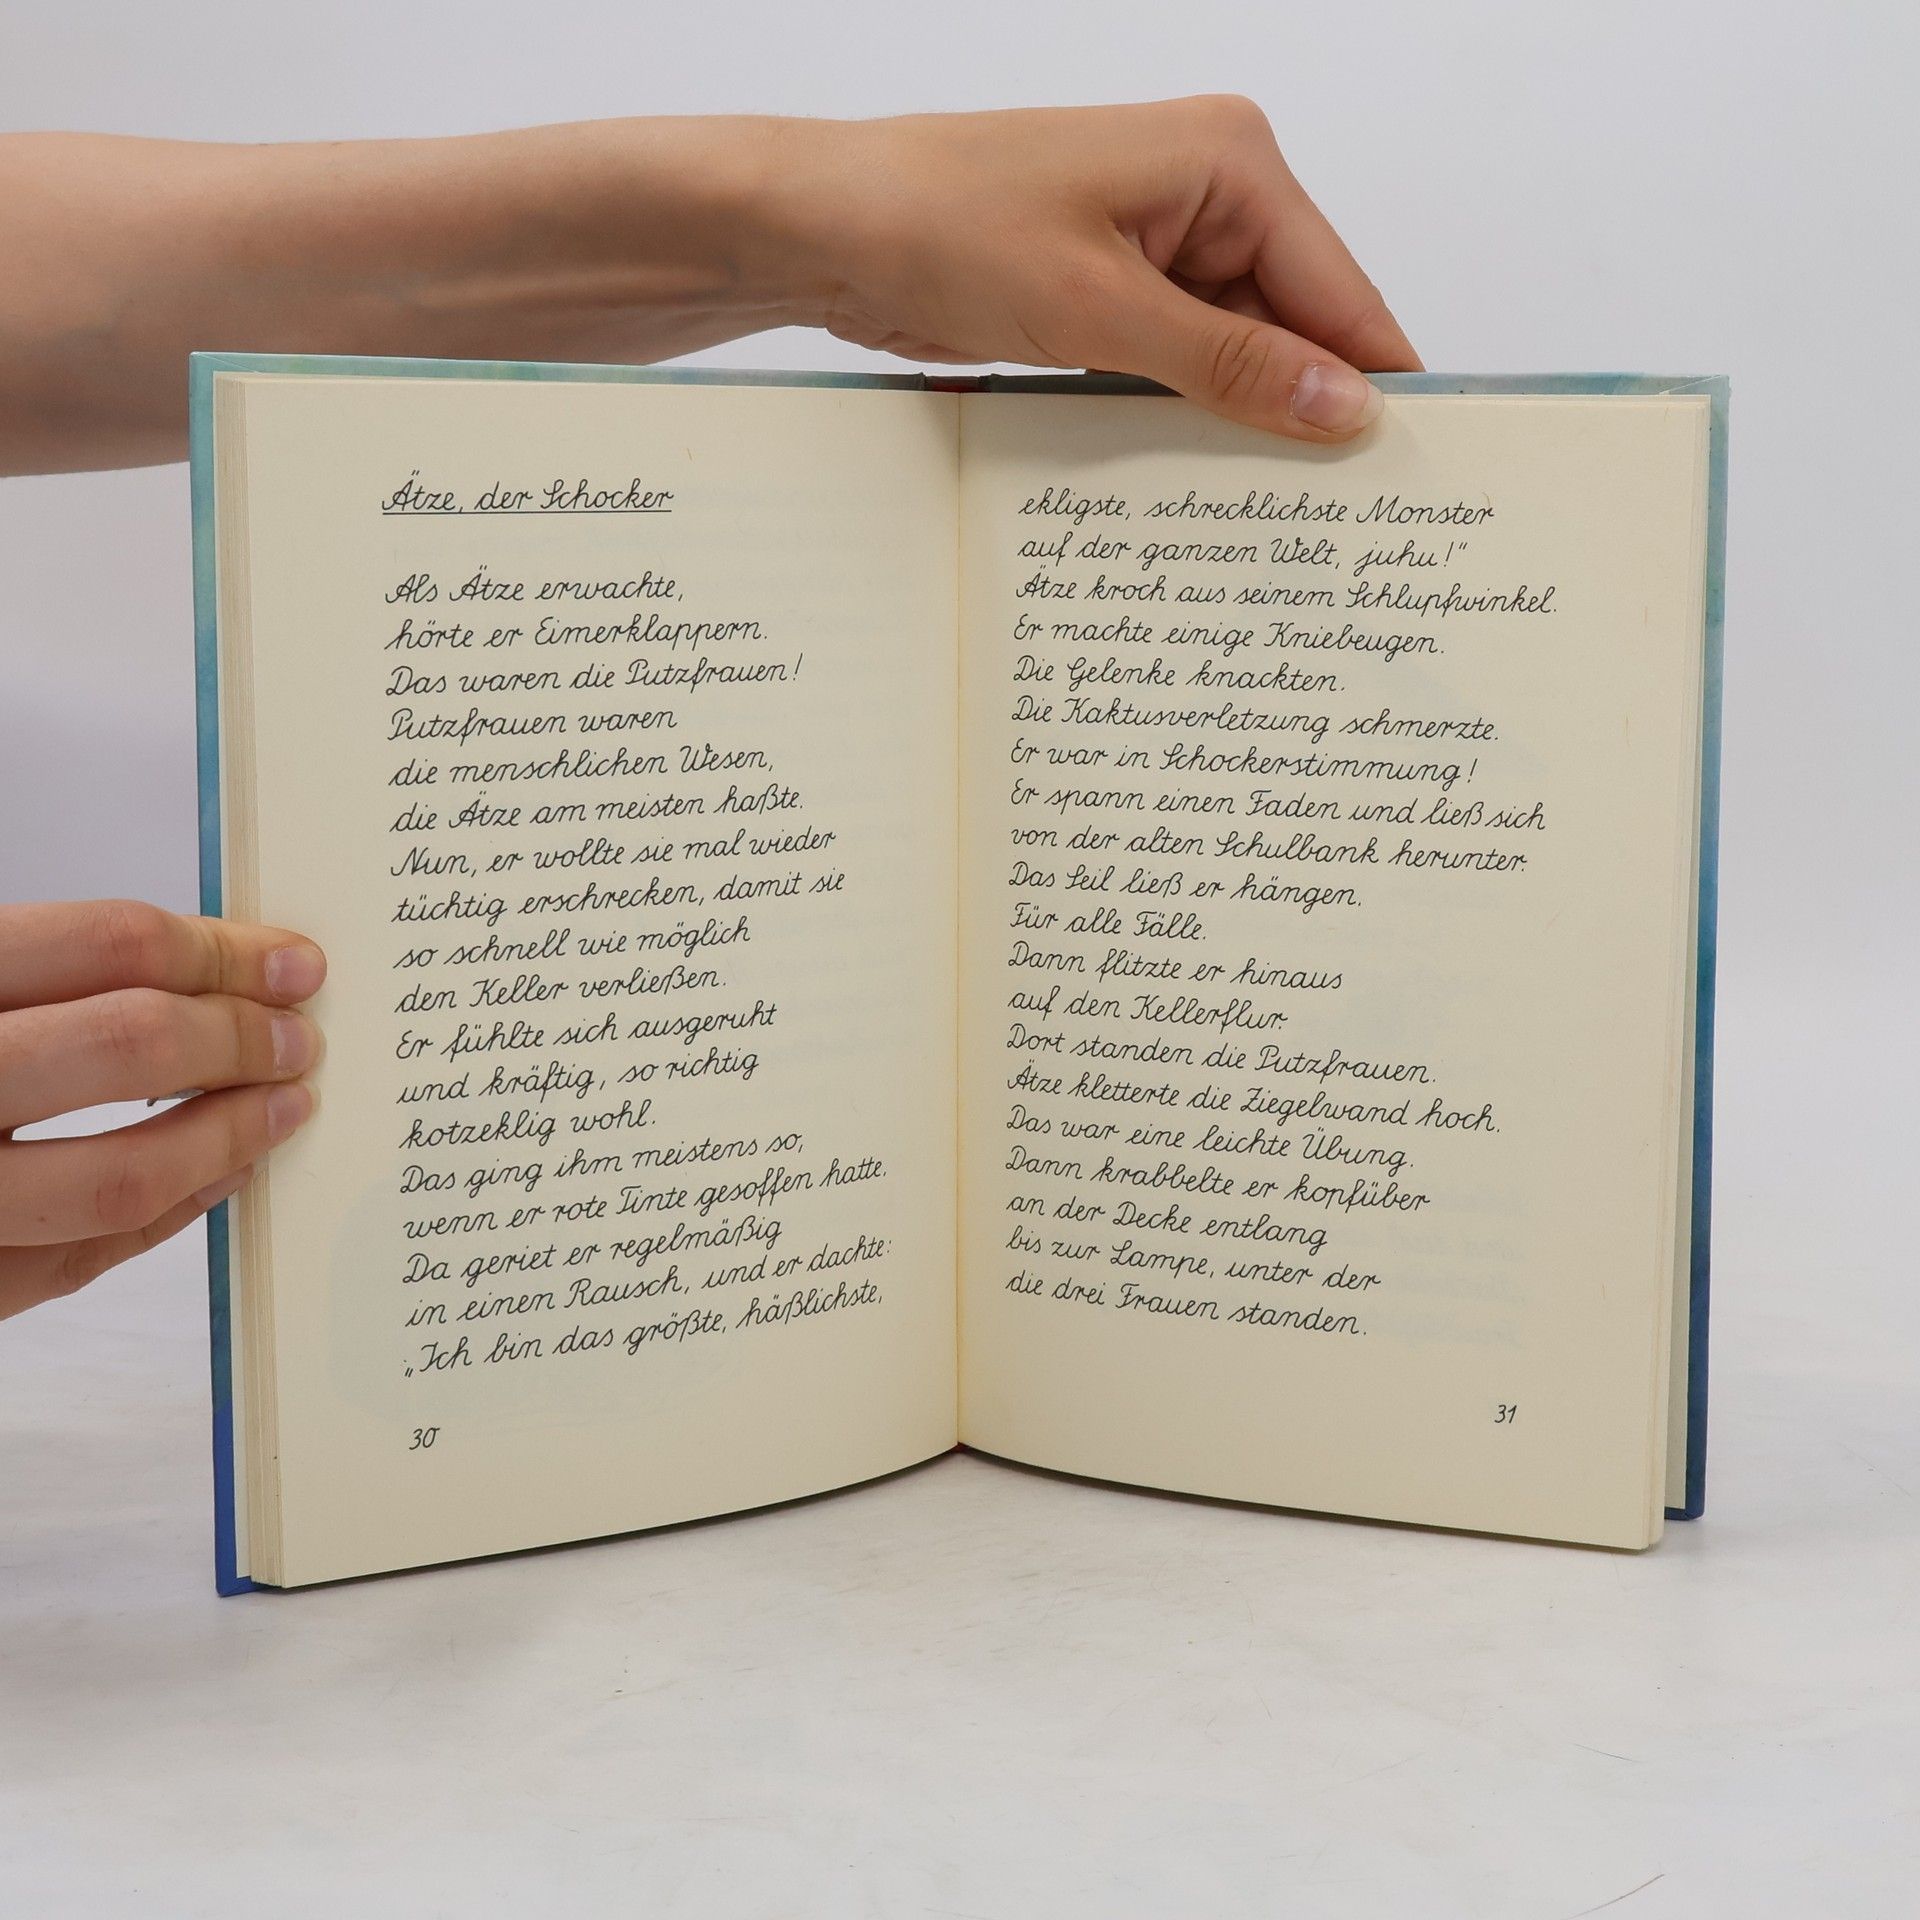 Ätze, der Schocker
Als Ätze erwachte,
hörte er Eimerklappern.
Das waren die Putzfrauen!
Putzfrauen waren
die menschlichen Wesen,
die Ätze am meisten haßte.
Nun, er wollte sie mal wieder
tüchtig erschrecken, damit sie
so schnell wie möglich
den Keller verließen.
Er fühlte sich ausgeruht
und kräftig, so richtig
kotzeklig wohl.
Das ging ihm meistens so,
wenn er rote Tinte gesoffen hatte.
Da geriet er regelmäßig
in einen Rausch, und er dachte:
„Ich bin das größte, häßlichste,
30
ekligste, schrecklichste Monster
auf der ganzen Welt, juhu!“
Ätze kroch aus seinem Schlupfwinkel.
Er machte einige Kniebeugen.
Die Gelenke knackten.
Die Kaktusverletzung schmerzte.
Er war in Schockerstimmung!
Er spann einen Faden und ließ sich
von der alten Schulbank herunter.
Das Seil ließ er hängen.
Für alle Fälle.
Dann flitzte er hinaus
auf den Kellerflur.
Dort standen die Putzfrauen.
Ätze kletterte die Ziegelwand hoch.
Das war eine leichte Übung.
Dann krabbelte er kopfüber
an der Decke entlang
bis zur Lampe, unter der
die drei Frauen standen.
31